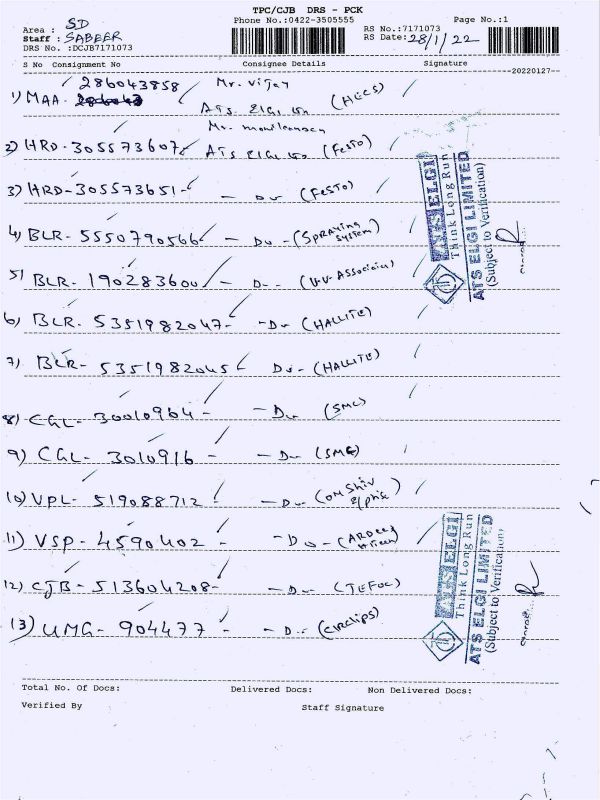 TPC/CJB DRS - PCK
Phone No.:0422-3505555 Page No.:1
Area : SD
Staff : SABEER
DRS No. :DCJB7171073
RS No.:7171073
RS Date: 28/1/22
S No Consignment No Consignee Details Signature
20220127
286043858 Mr. Vijay
1) MAA - ATS ELGI (HECS)
2) HRD - 305573607 ATS ELGI (FESTO)
3) HRD - 305573651 - Do - (FESTO)
4) BLR - 5550790566 - Do - (SPRAYING SYSTEM)
5) BLR - 190283600 - Do -
6) BLR - 5351982047 - Do - (HALLITE)
7) BLR - 5351982045 Do - (HALLITE)
8) CGL - 30010964 - Do - (SMC)
9) CGL - 3010916 - Do - (SMC)
10) VPL - 519088712 - Do - (OM Shiv
11) VSP - 4590402 - Do -
12) CJB - 513604208 - Do -
13) UMG - 904477 - Do - (CIRCLIPS)
ATS ELGI
Think Long Run
ATS ELGI LIMITED
(Subject to Verification)
ATS ELGI
Think Long Run
ATS ELGI LIMITED
(Subject to Verification)
Total No. Of Docs: Delivered Docs: Non Delivered Docs:
Verified By Staff Signature